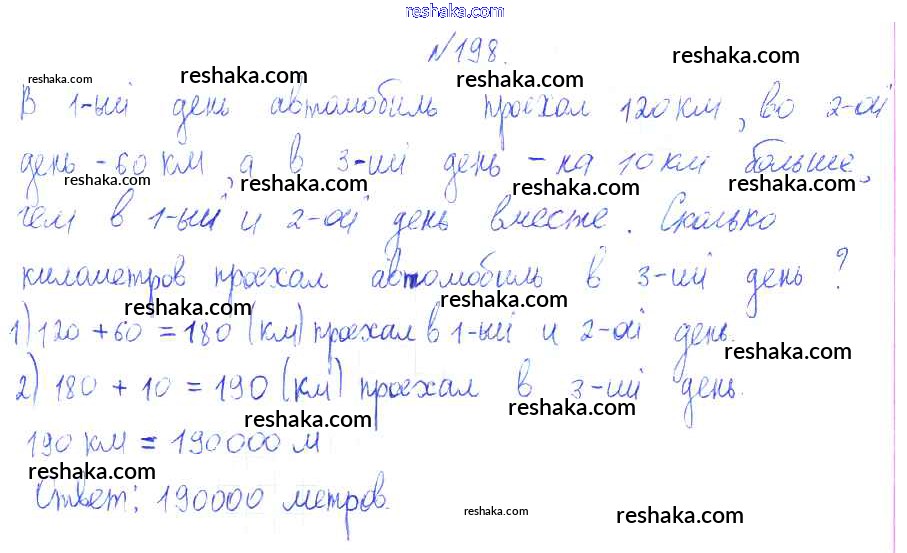 reshaka.com
№198.
reshaka.com reshaka.com reshaka.com
В 1-ый день автомобиль проехал 120 км, во 2-ой
день - 60 км, а в 3-ий день - на 10 км больше,
reshaka.com reshaka.com reshaka.com reshaka.com
чем в 1-ый и 2-ой день вместе. Сколько
километров проехал автомобиль в 3-ий день?
reshaka.com reshaka.com
1) 120 + 60 = 180 (км) проехал в 1-ый и 2-ой день.
reshaka.com
2) 180 + 10 = 190 (км) проехал в 3-ий день.
reshaka.com reshaka.com
190 км = 190000 м
reshaka.com
Ответ: 190000 метров.
reshaka.com reshaka.com